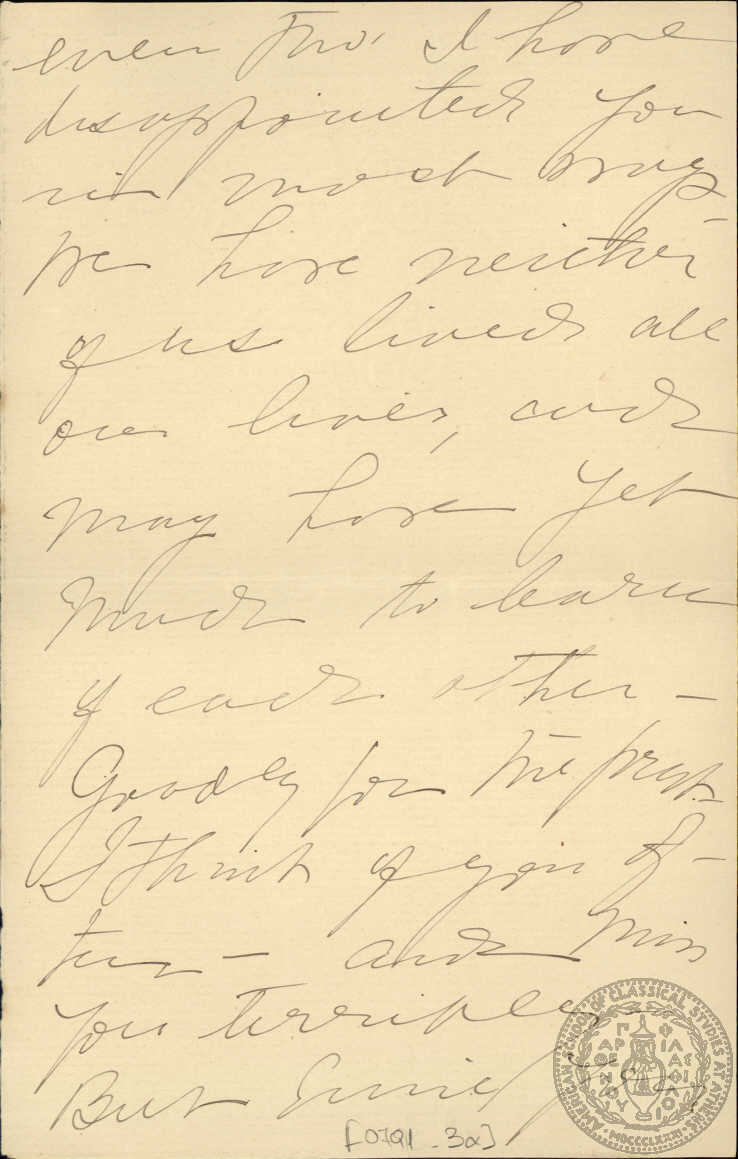 even tho' I have
disappointed you
in most ways
We have neither
of us lived all
our lives, and
may have yet
much to learn
of each other –
Goodby for the prest.
I think of you of-
ten – and miss
you terribly
But
[0791 - 3α]
AMERICAN SCHOOL OF CLASSICAL STUDIES AT ATHENS
ΠΑΡΘΕΝΟΥ ΦΙΛΑΣ ΦΙ
MDCCCLXXXI